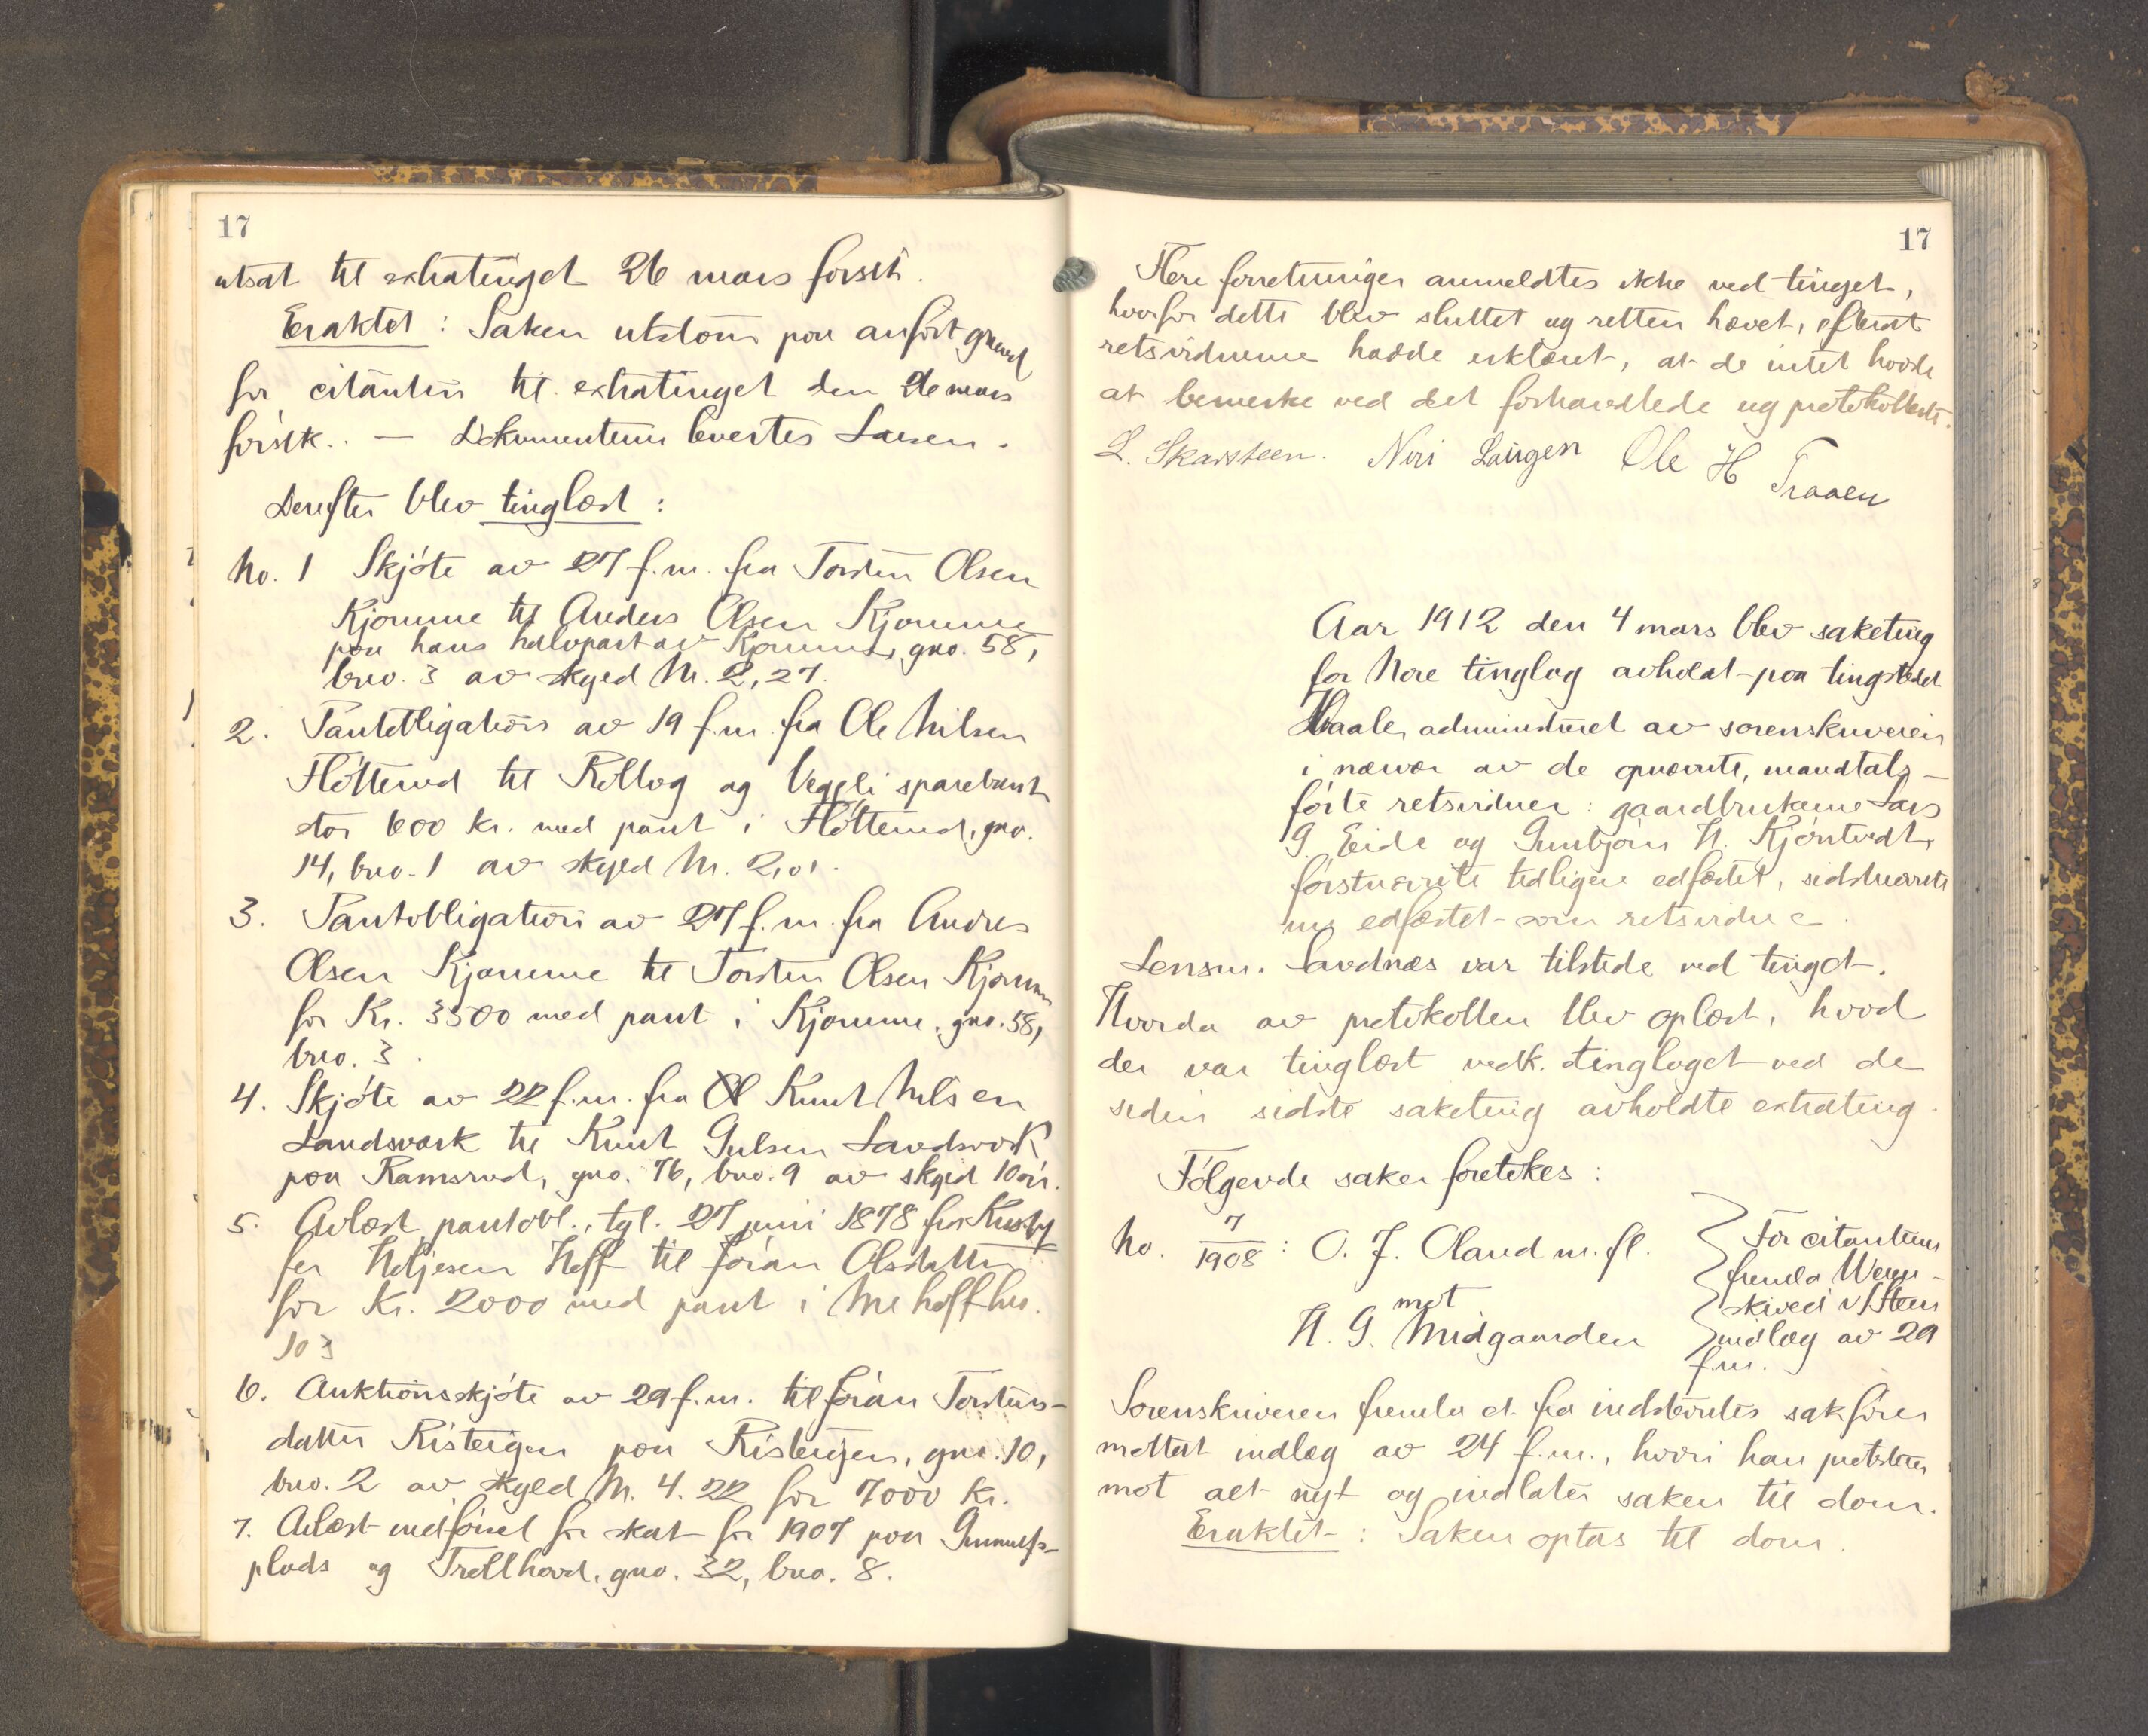 17
utsat til extratinget 26 mars førstk.
Eraktet : Saken utstaar paa anført grund
for citanten til extratinget den 26 mars
førstk. . — Dokumentene levertes Larsen.
Derefter blev tinglæst :
No. 1 Skjøte av 27 f.m. fra Torsten Olsen
Kjomme til Anders Olsen Kjomme
paa hans halvpart av Kjomme, gno. 58,
bno. 3 av skyld M. 2,27.
2. Pantobligation av 19 f.m. fra Ole Nilsen
Fløtterud til Rollag og Veggli sparebank
stor 600 kr. med pant i Fløtterud, gno.
14, bno. 1 av skyld M. 2,01.
3. Pantobligation av 27 f.m. fra Andres
Olsen Kjomme til Torsten Olsen Kjomme
for Kr. 3500 med pant i Kjomme, gno. 58,
bno. 3.
4. Skjøte av 22 f.m. fra Knut Nilsen
Landsværk til Knut Gulsen Landsværk
paa Ramsrud, gno. 76, bno. 9 av skyld 10 ør.
5. Avlæst pantobl., tgl. 27 juni 1878 fra Kristof
fer Heljesen Hoff til Jøran Olsdatter
for Kr. 2000 med pant i hoff
103
6. Auktionsskjøte av 29 f.m. til Jøran Torstens-
datter Risteigen paa Risteigen, gno. 10,
bno. 2 av skyld M. 4.22 for 7000 kr.
7. Avlæst utførsel for skat for 1907 paa Gunnulfs-
plads og Trollhovd, gno. 32, bno. 8.
17
Flere forretninger anmeldtes ikke ved tinget,
hvorfor dette blev sluttet og retten hævet, efterat
retsvidnerne hadde erklært, at de intet havde
at bemerke ved det forhandlede og protokollerte.
L. Skarsteen. Niri Laugen Ole H Traaen
Aar 1912 den 4 mars blev saketing
for Nore tinglag avholdt paa tingstedet
Haale, administreret av sorenskriveren
i nærvær av de opnævnte, mandtals-
førte retsvidner : gaardbrukerne Lars
G Eide og Gunbjørn H. Kjøntvedt,
førstnævnte tidligere edfæstet, sidstnævnte
nu edfæstet som retsvidne.
Lensm. Landnæs var tilstede ved tinget.
Hvorda av protokollen blev oplæst, hvad
der var tinglæst vedk. tinglaget ved de
siden sidste saketing avholdte extrating.
Følgende saker foretokes :
No. 7/1908 : O. J. Oland m. fl.
mot
H. G. Midgaarden
For citanterne
fremla Wenn-
skived v/Steen
indlæg av 29
f.m.
Sorenskriveren fremla et fra indstevntes sakfører
mottat indlæg av 24 f.m., hvori han protesterer
mot alt nyt og indlater saken til dom.
Eraktet : Saken optas til dom.